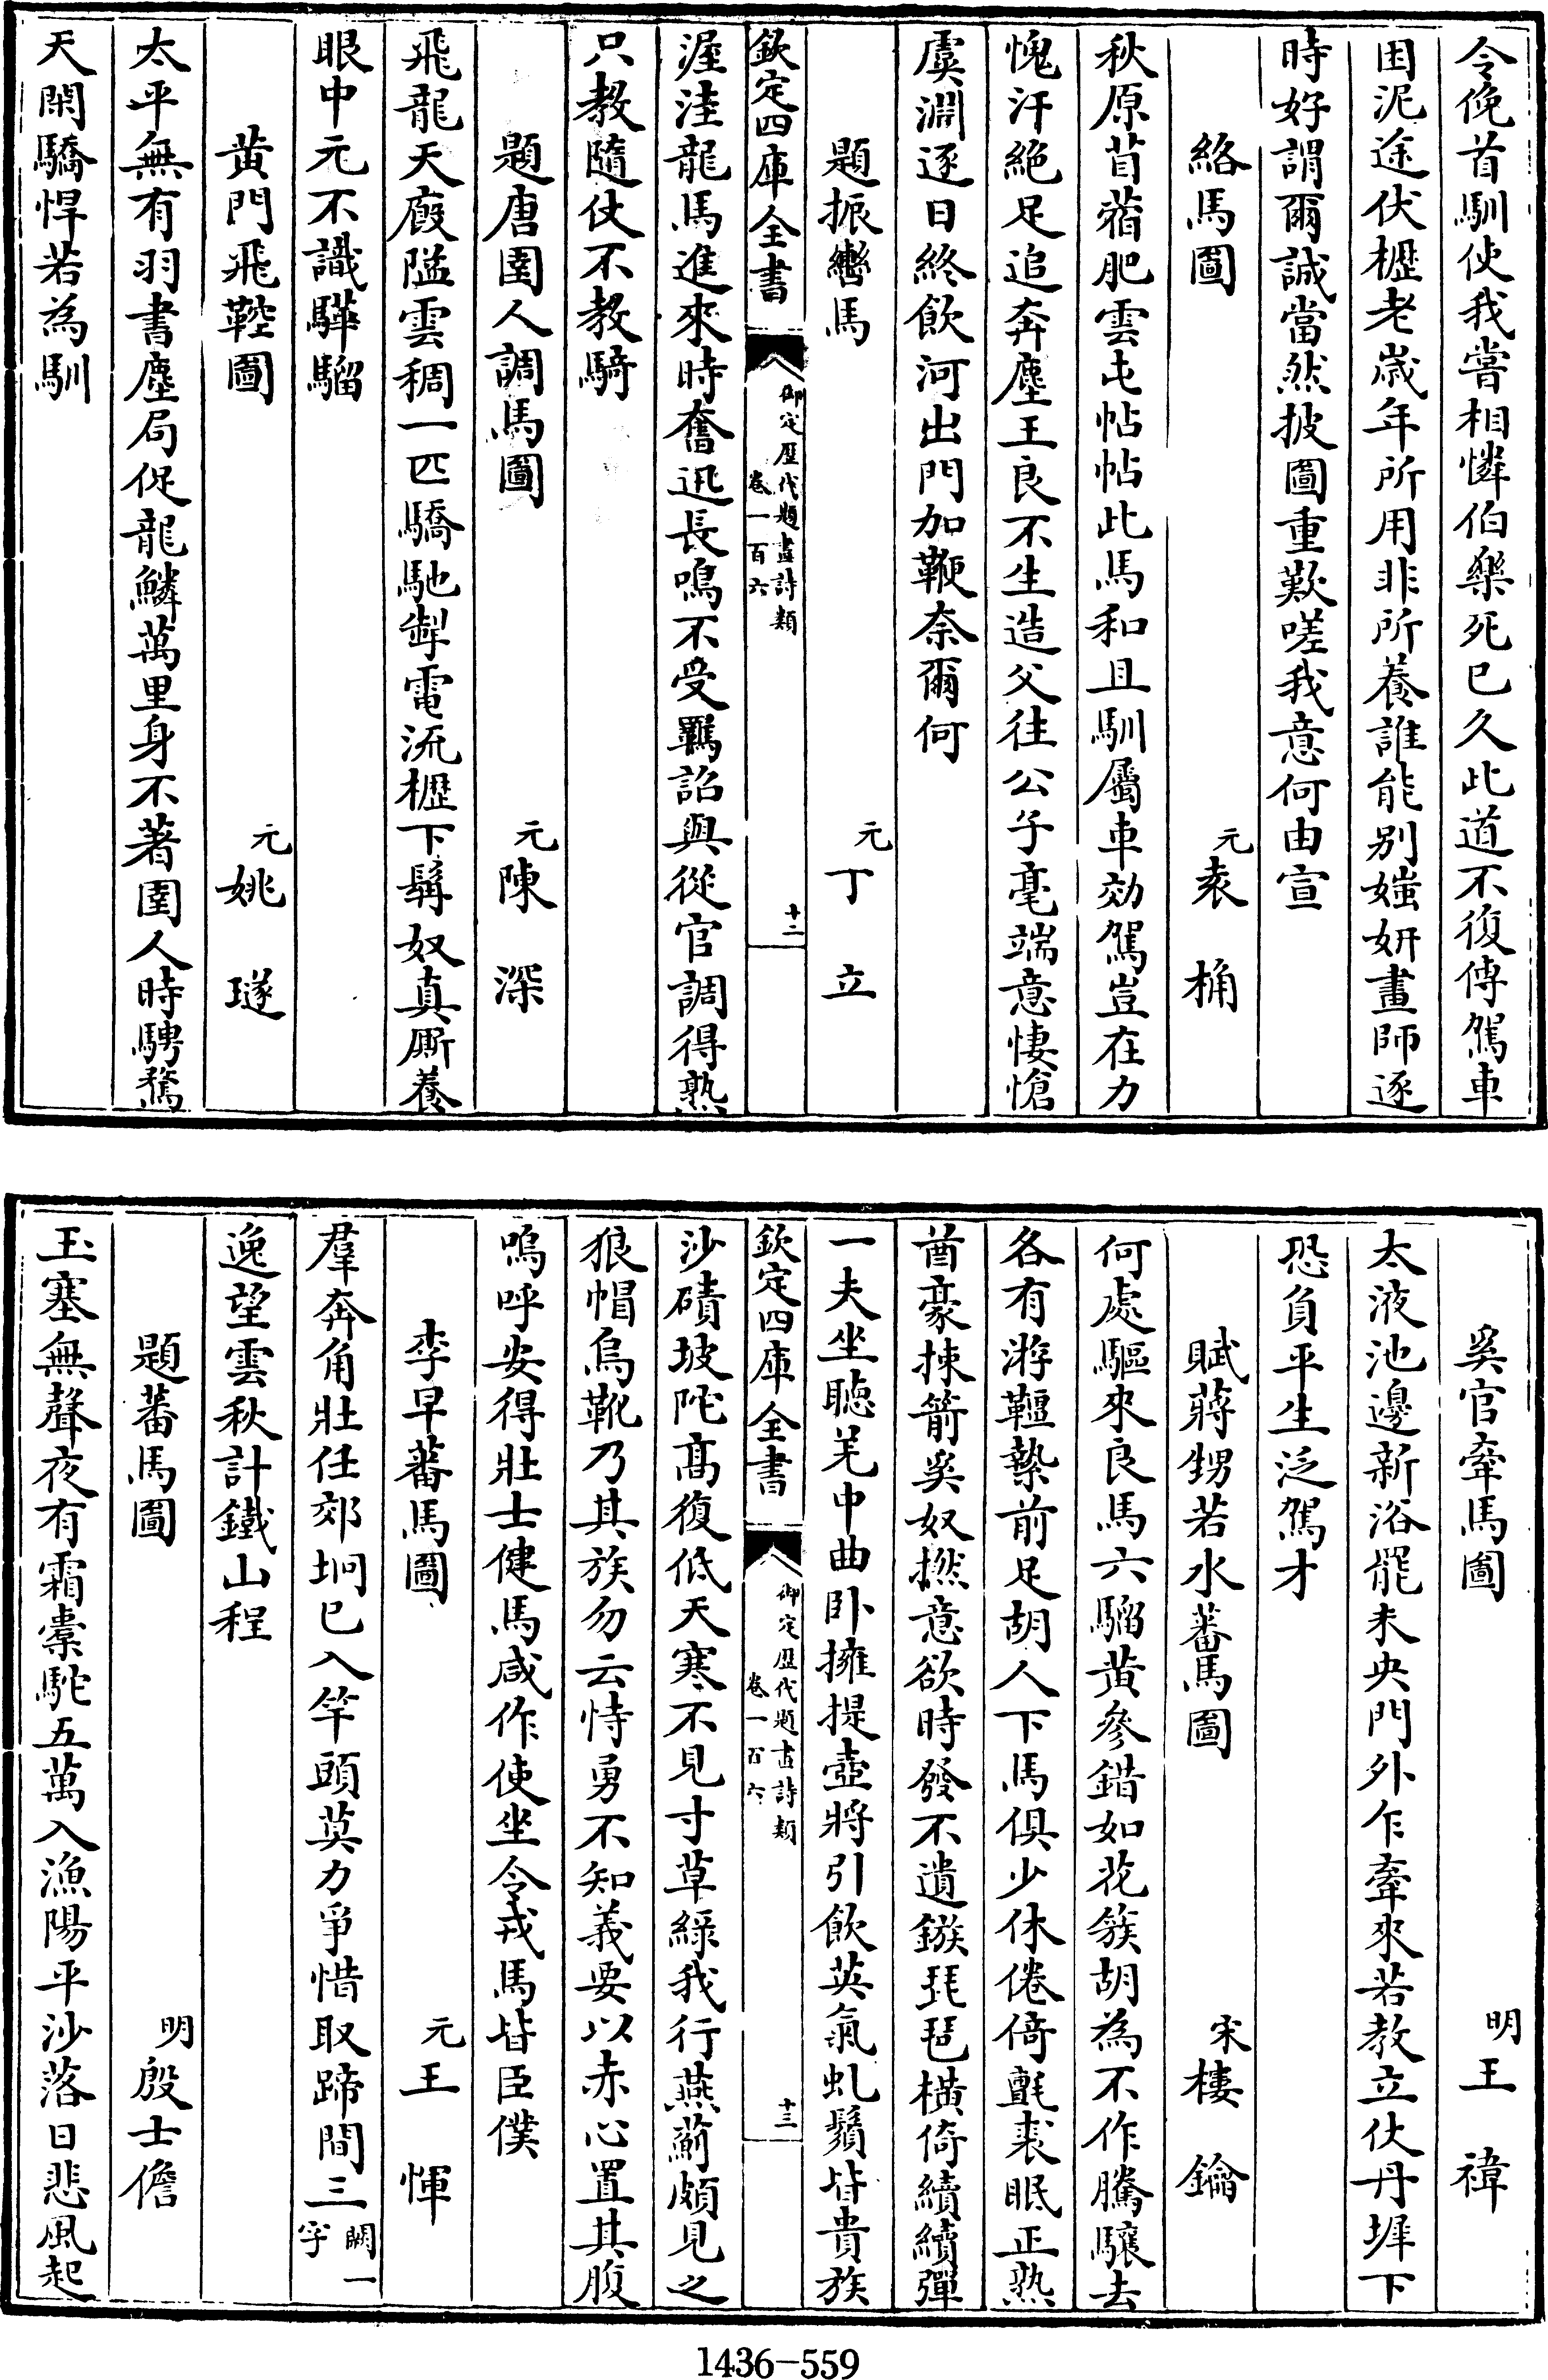 令俛首馴使我嘗相憐伯樂死已久此道不復傳駕車
困泥途伏櫪老歲年所用非所養誰能别媸妍畫師逐
時好謂爾誠當然披圖重歎嗟我意何由宣
絡馬圖 元袁桷
秋原苜蓿肥雲屯帖帖此馬和且馴屬車効駕豈在力
愧汗絶足追奔塵王良不生造父往公子毫端意悽愴
虞淵逐日終飲河出門加鞭奈爾何
題振轡馬 元丁立
欽定四庫全書 御定歷代題畫詩類 卷一百六 十二
渥洼龍馬進來時奮迅長鳴不受羈詔與從官調得熟
只教隨仗不教騎
題唐圉人調馬圖 元陳深
飛龍天廐隘雲稠一匹驕馳掣電流櫪下髯奴真厮養
眼中元不識驊騮
黄門飛鞚圖 元姚璲
太平無有羽書塵局促龍鱗萬里身不著圉人時騁騖
天閑驕悍若為馴
奚官牽馬圖 明王禕
太液池邊新浴罷未央門外乍牽來若教立仗丹墀下
恐負平生泛駕才
賦蔣甥若水蕃馬圖 宋樓鑰
何處驅來良馬六騮黄參錯如花簇胡為不作騰驤去
各有游韁縶前足胡人下馬俱少休倦倚氈裘眠正熟
酋豪揀箭奚奴撚意欲時發不遺鏃琵琶横倚續續彈
一夫坐聽羌中曲卧擁提壺將引飲英氣虬鬚皆貴族
欽定四庫全書 御定歷代題畫詩類 卷一百六 十三
沙磧坡陀高復低天寒不見寸草緑我行燕薊頗見之
狼帽烏靴乃其族勿云恃勇不知義要以赤心置其腹
嗚呼安得壯士健馬咸作使坐令戎馬皆臣僕
李早蕃馬圖 元王惲
羣奔角壯任郊坰已入竿頭莫力爭惜取蹄間三闕一字
逸望雲秋計鐵山程
題蕃馬圖 明殷士儋
玉塞無聲夜有霜橐駝五萬入漁陽平沙落日悲風起
1436-559